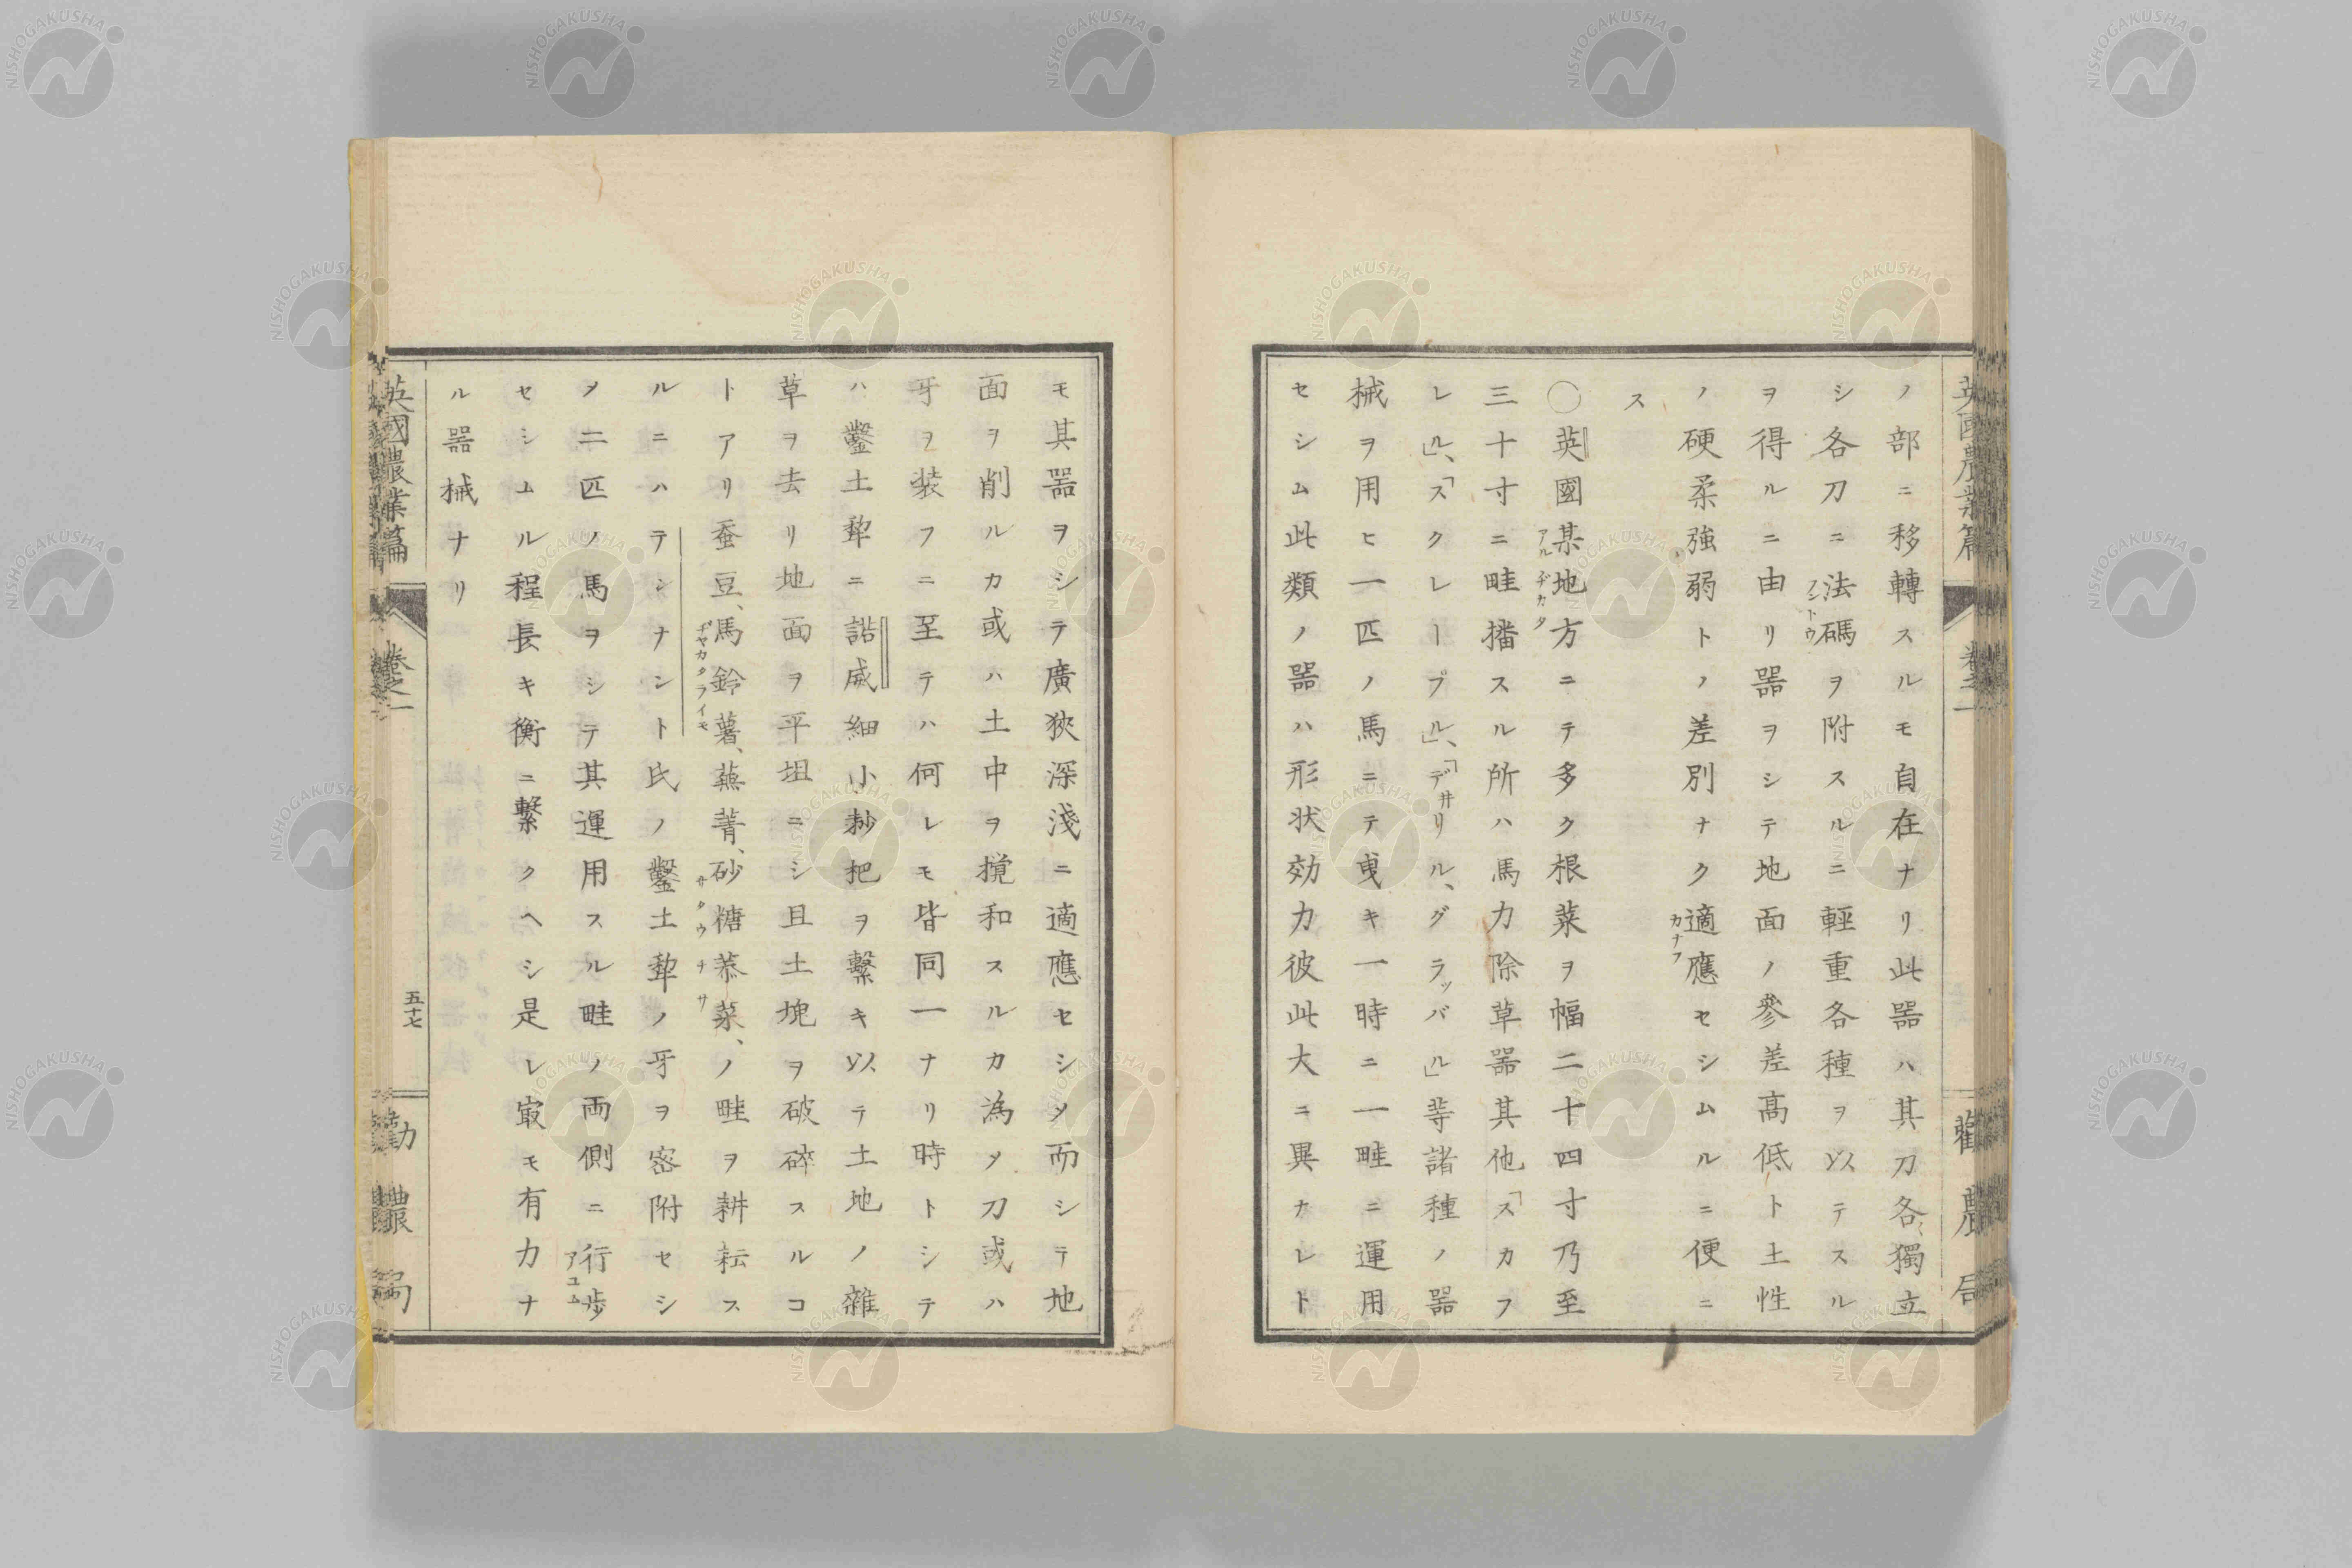 ノ部ニ移轉スルモ自在ナリ此器ハ其刀各〻獨立
シ各刀ニ法碼ヲ附スルニ輕重各種ヲ以テスル
フントウ
ヲ得ルニ由リ器ヲシテ地面ノ參差高低ト土性
ノ硬柔強弱トノ差別ナク適應セシムルニ便ニ
カナフ
ス
〇英國某地方ニテ多ク根菜ヲ幅二十四寸乃至
アルヂカタ
三十寸ニ畦播スル所ハ馬力除草器其他「スカフ
レル」、「スクレープル」、「デ井リル、グラッバル」等諸種ノ器
械ヲ用ヒ一匹ノ馬ニテ曳キ一時ニ一畦ニ運用
セシム此類ノ器ハ形状効力彼此大ニ異ナレト
英國農業篇
卷之一
勸農局
モ其器ヲシテ廣狹深淺ニ適應セシメ而シテ地
面ヲ削ルカ或ハ土中ヲ攪和スルカ為メ刀或ハ
牙ヲ装フニ至テハ何レモ皆同一ナリ時トシテ
ハ鑿土犂ニ諾威細小耖耙ヲ繫キ以テ土地ノ雜
草ヲ去リ地面ヲ平坦ニシ且土塊ヲ破碎スルコ
トアリ蚕豆、馬鈴薯、蕪菁、砂糖菾菜、ノ畦ヲ耕耘ス
ヂヤカタライモ
サタウチサ
ルニハテシナント氏ノ鑿土犂ノ牙ヲ密附セシ
メ二匹ノ馬ヲシテ其運用スル畦ノ両側ニ行歩
アユム
セシムル程長キ衡ニ繫クヘシ是レ㝡モ有力ナ
ル器械ナリ
英國農業篇
卷之一
五十七
勸農局